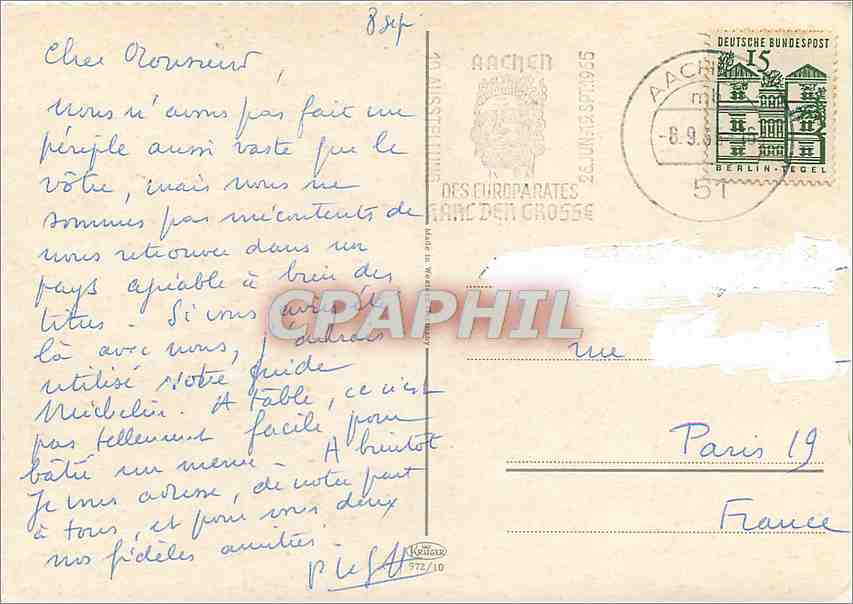 8 sep
Cher Monsieur,
Nous n'avons pas fait un
périple aussi vaste que le
vôtre, mais nous ne
sommes pas mécontents de
nous retrouver dans un
pays agréable à bien des
titres. Si vous aviez été
là avec nous, j'aurais
utilisé votre guide
Michelin. A table, ce n'est
pas tellement facile pour
bâtir un menu. A bientôt.
Je vous adresse, de notre part
à tous, et pour vous deux
nos fidèles amitiés.
AACHEN
10. AUSSTELLUNG
DES EUROPARATES
KARL DER GROSSE
26. JUNI-19. SPT. 1965
AACH
-8.9.6
51
DEUTSCHE BUNDESPOST
15
BERLIN-TEGEL
Made in Western Germany
CPAPHIL
rue
Paris 19
France
KRÜGER
972/10